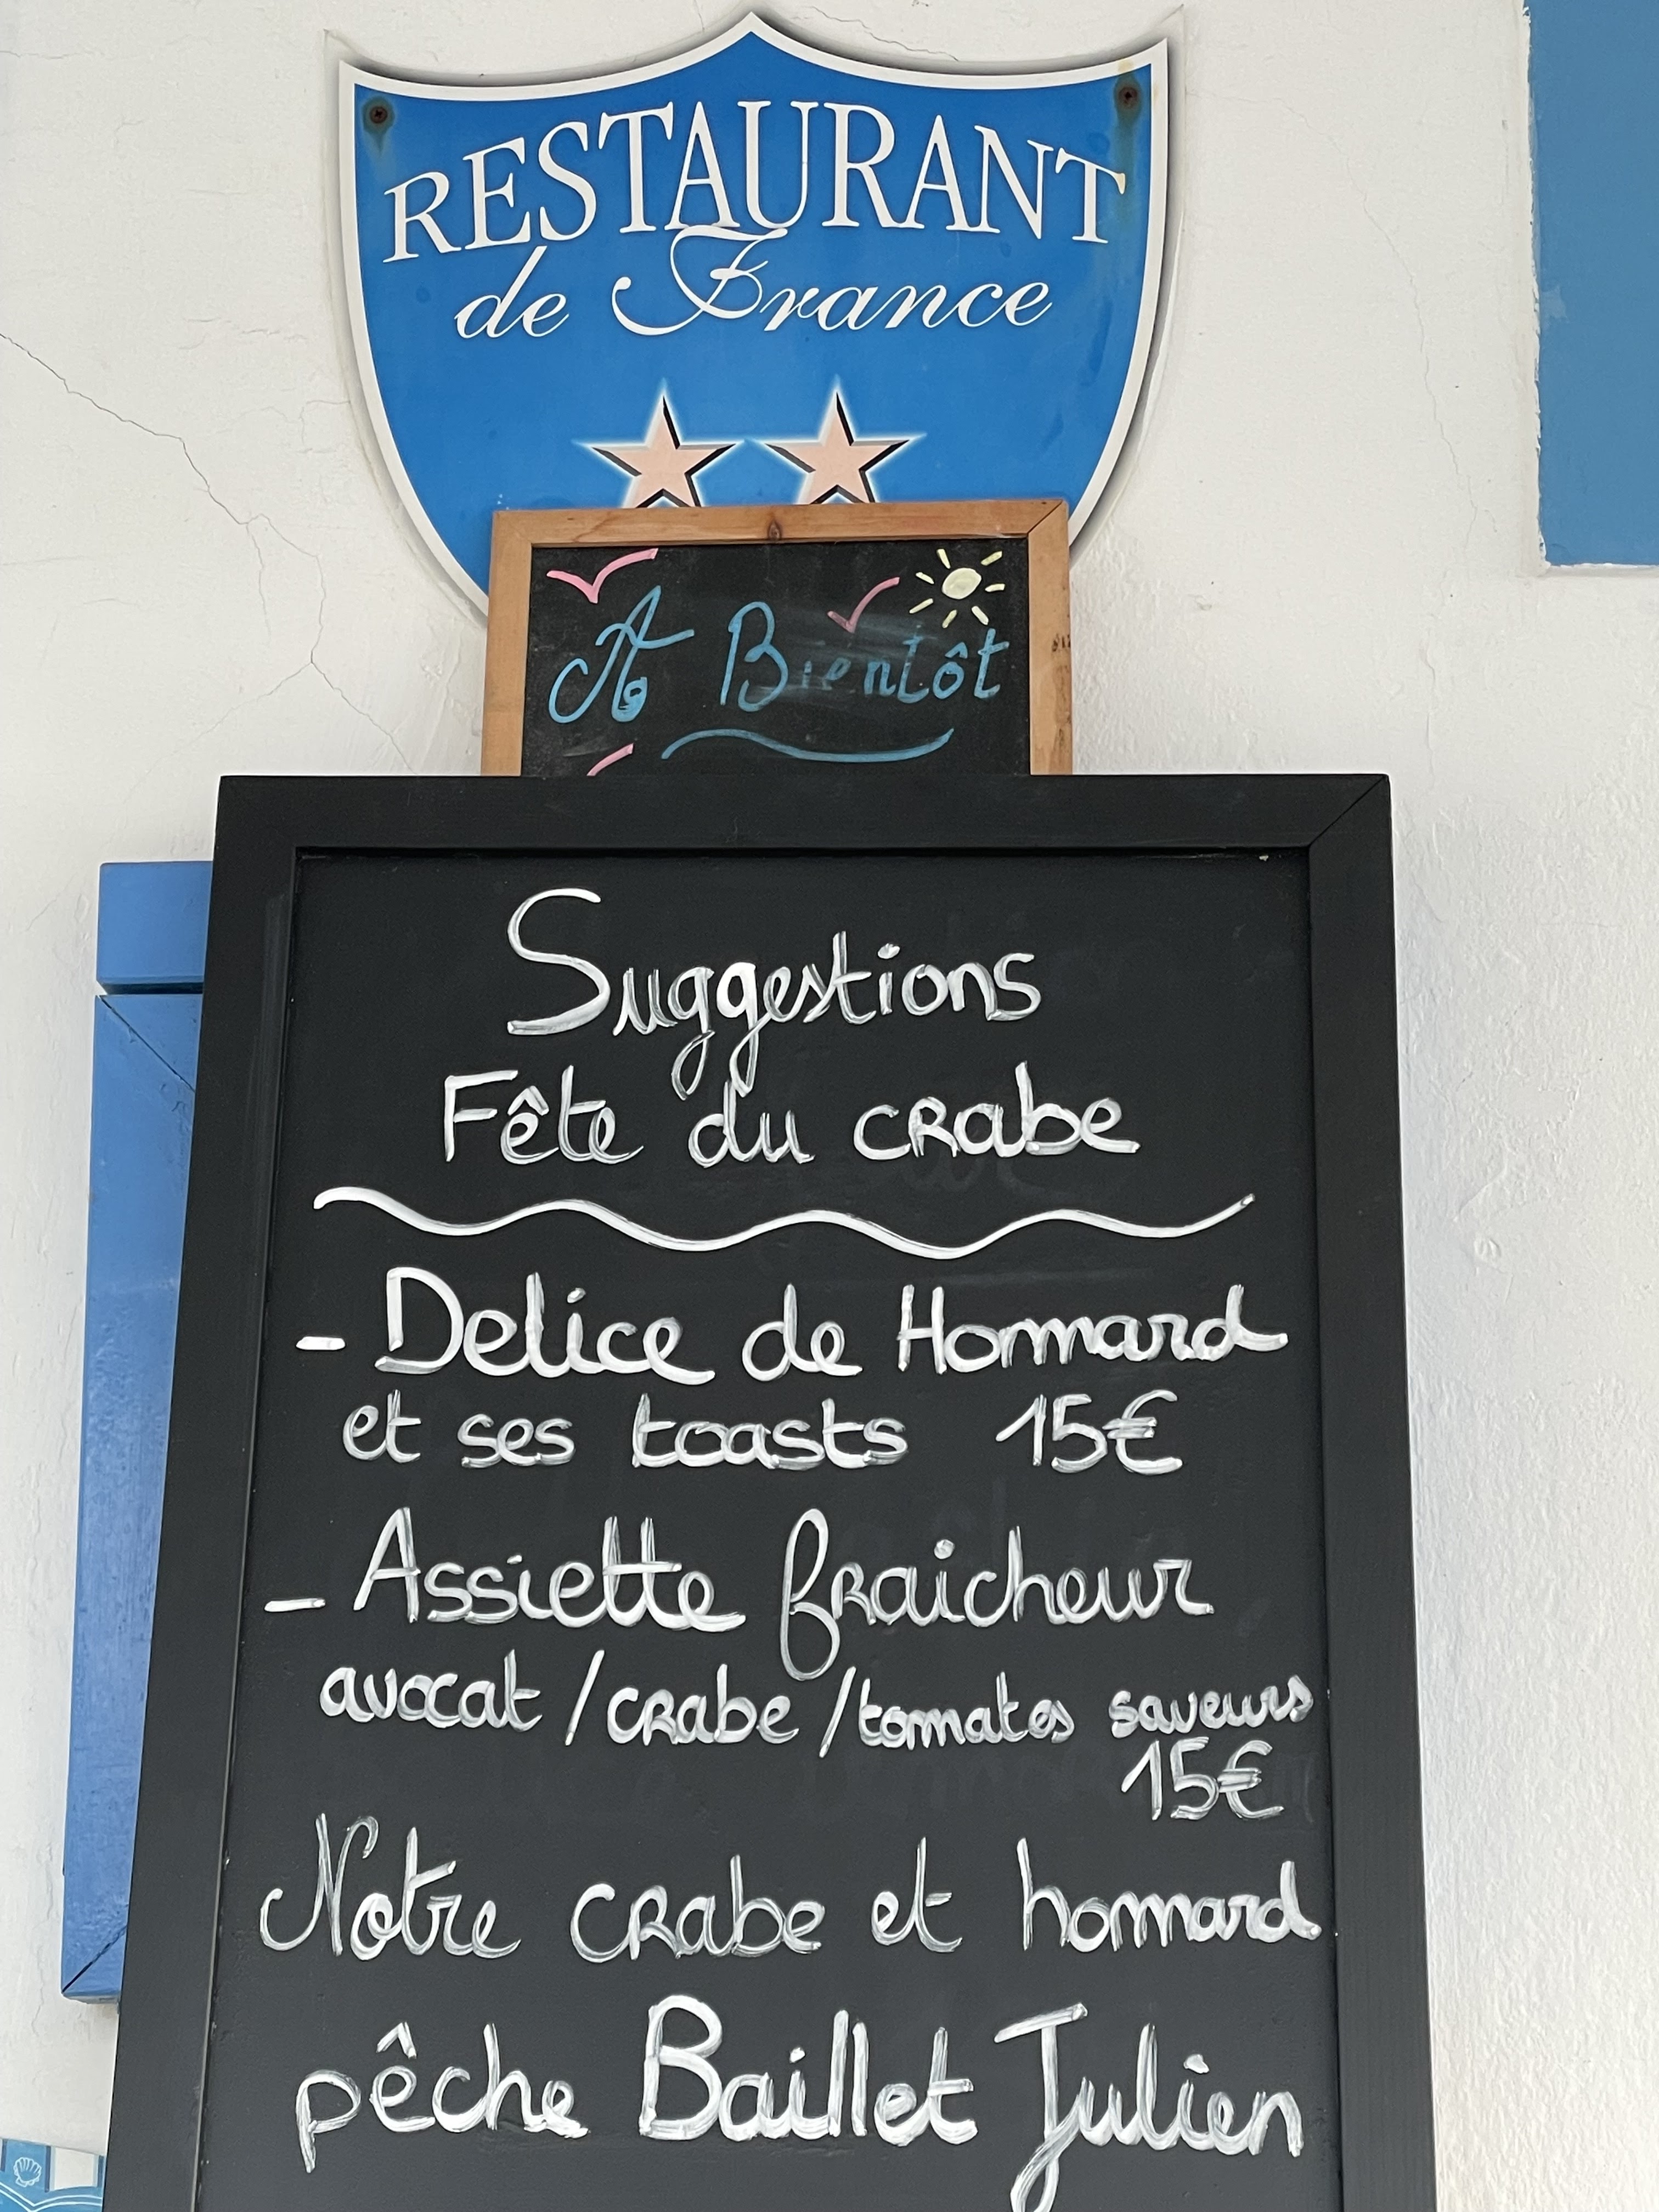 RESTAURANT
de France
A Bientôt
Suggestions
Fête du crabe
- Delice de Hommard
et ses toasts 15€
- Assiette fraicheur
avocat / crabe / tomates saveurs
15€
Notre crabe et hommard
pêche Baillet Julien